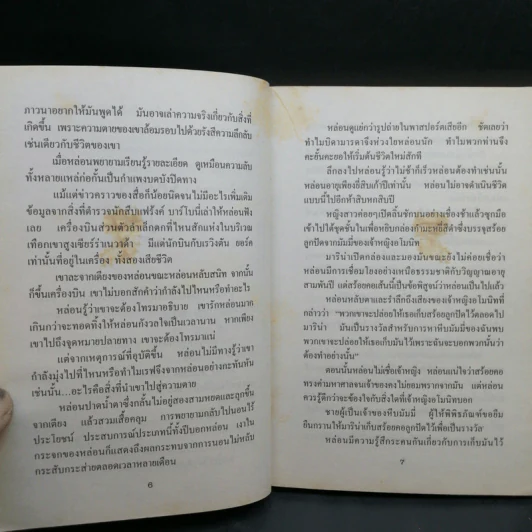 ภาวนาอยากให้มันพูดได้ มันอาจเล่าความจริงเกี่ยวกับสิ่งที่
เกิดขึ้น เพราะความตายของเขาล้อมรอบไปด้วยรังสีความลึกลับ
เช่นเดียวกับชีวิตของเขา
เมื่อหล่อนพยายามเรียนรู้รายละเอียด ดูเหมือนความลับ
ทั้งหลายแหล่ก่อกันเป็นกำแพงบดบังปิดทาง
แม้แต่ข่าวคราวของสื่อก็น้อยนิดจนไม่มีอะไรเพิ่มเติม
ข้อมูลจากสิ่งที่ตำรวจนักสืบแฟรังค์ บาร์โบนี่เล่าให้หล่อนฟัง
เลย เครื่องบินส่วนตัวลำเล็กตกที่ไหนสักแห่งในบริเวณ
เทือกเขาสูงเซียร์ร่าเนวาด้า มีแต่นักบินกับเรวิงตัน ยอร์ค
เท่านั้นที่อยู่ในเครื่อง ทั้งสองเสียชีวิต
เขาละจากเตียงของหล่อนขณะหล่อนหลับสนิท จากนั้น
ก็ขึ้นเครื่องบิน เขาไม่บอกสักคำว่ากำลังไปไหนหรือทำอะไร
หล่อนรู้ว่าเขาจะต้องโทรมาอธิบาย เขารักหล่อนมาก
เกินกว่าจะทอดทิ้งให้หล่อนกังวลใจเป็นเวลานาน หากเพียง
เขาไปถึงจุดหมายปลายทาง เขาจะต้องโทรมาแน่
แต่จากเหตุการณ์ที่อุบัติขึ้น หล่อนไม่มีทางรู้ว่าเขา
กำลังมุ่งไปที่ไหนหรือทำไมเรฟจึงจากหล่อนอย่างกะทันหัน
เช่นนั้น...อะไรคือสิ่งที่นำเขาไปสู่ความตาย
หล่อนปาดน้ำตาซึ่งกลั้นไม่อยู่สองสามหยดและลุกขึ้น
จากเตียง แล้วสวมเสื้อคลุม การพยายามกลับไปนอนไร้
ประโยชน์ ประสบการณ์ประเภทนี้ทั้งปีบอกหล่อน เงาใน
กระจกของหล่อนก็แสดงถึงผลกระทบจากการนอนไม่หลับ
กระสับกระส่ายตลอดเวลาหลายเดือน
6
หล่อนดูแย่กว่ารูปถ่ายในพาสปอร์ตเสียอีก ชัดเลยว่า
ทำไมบิดามารดาจึงห่วงใยหล่อนนัก ทำไมพวกท่านจึง
คะยั้นคะยอให้เริ่มต้นชีวิตใหม่สักที
ลึกลงไปหล่อนรู้ว่าไม่ช้าก็เร็วหล่อนต้องทำเช่นนั้น
หล่อนอายุเพียงยี่สิบเก้าปีเท่านั้น หล่อนไม่อาจดำเนินชีวิต
แบบนี้ไปอีกห้าสิบหกสิบปี
หญิงสาวค่อยๆเปิดลิ้นชักบนอย่างเชื่องช้าแล้วซุกมือ
เข้าไปใต้ชุดชั้นในเพื่อหยิบกล่องกำมะหยี่สีดำซึ่งบรรจุสร้อย
ลูกปัดจากมัมมี่ของเจ้าหญิงคโมนิท
มารีน่าเปิดกล่องและมองมันขณะยังไม่ค่อยเชื่อว่า
หล่อนมีการเชื่อมโยงอย่างเหนือธรรมชาติกับวิญญาณอายุ
สามพันปี แต่สร้อยคอเส้นนี้เป็นข้อพิสูจน์ว่าหล่อนเป็นไปแล้ว
หล่อนหลับตาและรำลึกถึงเสียงของเจ้าหญิงคโมนิทที่
กล่าวว่า “พวกเขาจะปล่อยให้เธอเก็บสร้อยลูกปัดไว้ตลอดไป
มารีน่า มันเป็นรางวัลสำหรับการหาหีบมัมมี่ของฉันพบ
พวกเขาจะปล่อยให้เธอเก็บมันไว้เพราะฉันจะบอกพวกนั้นว่า
ต้องทำอย่างนั้น”
ตอนนั้นหล่อนไม่เชื่อเจ้าหญิง หล่อนแน่ใจว่าสร้อยคอ
ทรงค่ามหาศาลจนเจ้าของคงไม่ยอมพรากจากมัน แต่หล่อน
ควรรู้ดีกว่าจะข้องใจกับสิ่งใดที่เจ้าหญิงคโมนิทบอก
ชายผู้เป็นเจ้าของหีบมัมมี่ ผู้ให้พิพิธภัณฑ์ของยืม
ยืนกรานให้มารีน่าเก็บสร้อยคอลูกปัดไว้เพื่อเป็นรางวัล
หล่อนมีความรู้สึกระคนกันเกี่ยวกับการเก็บมันไว้
7